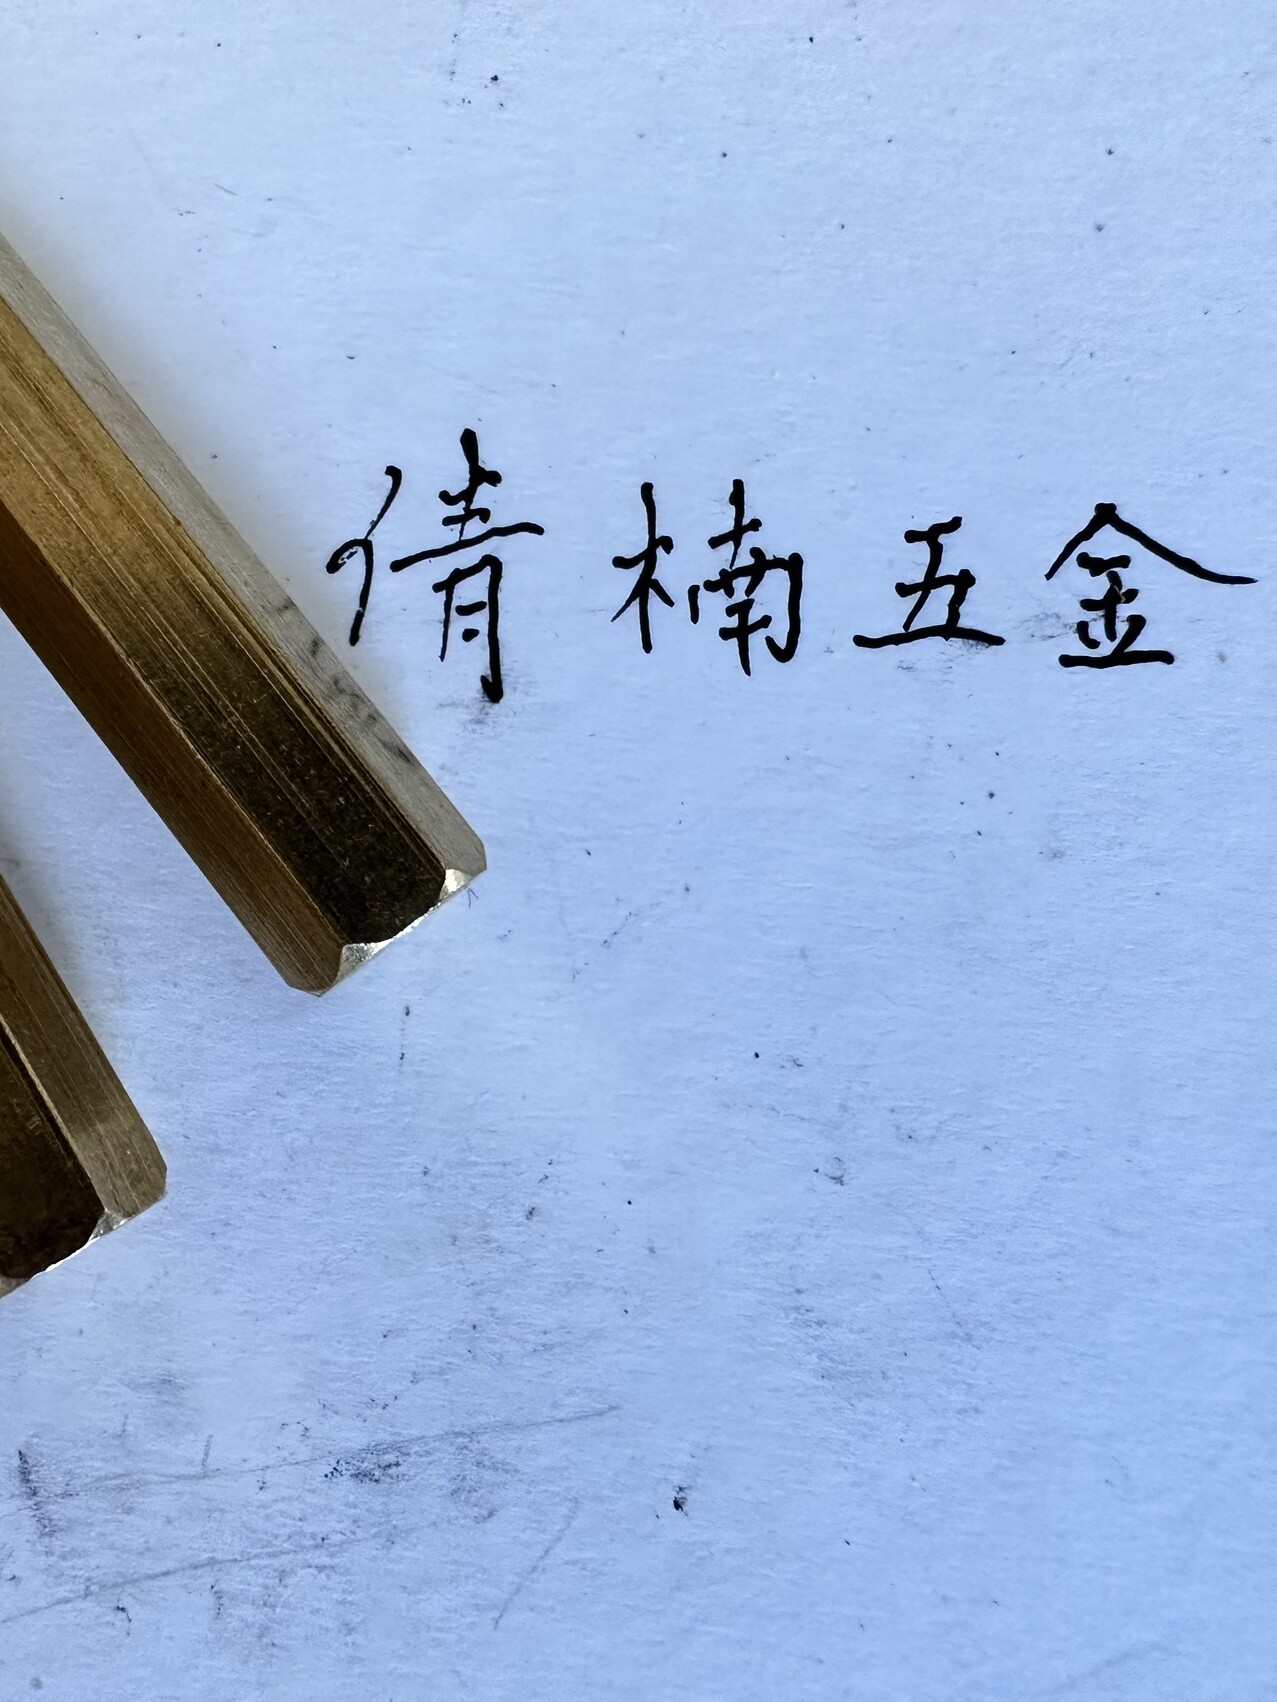 倩楠五金